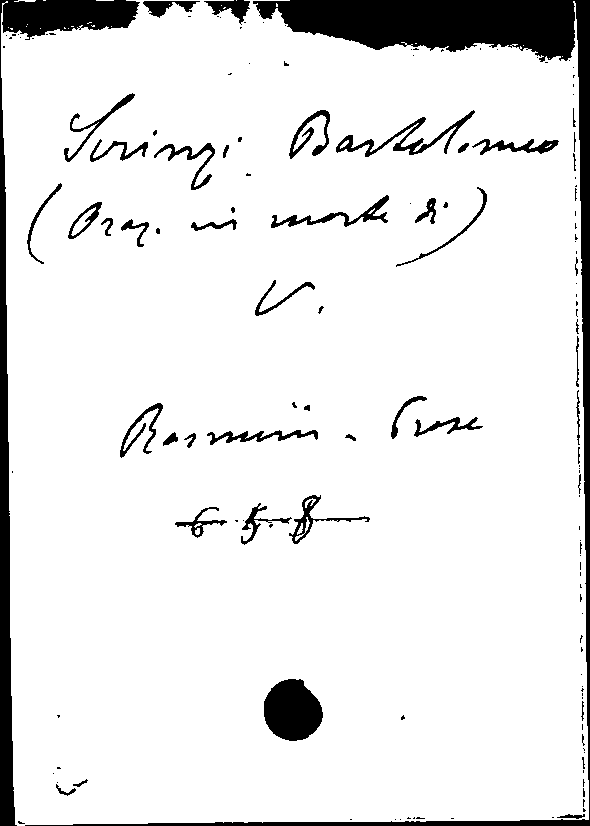 Bartolomeo
(Oraz. in morte di)
V.
Prose
6 5. 8